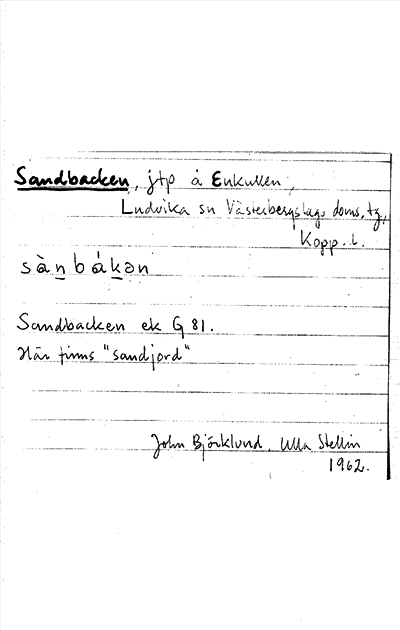 Sandbacken, jtp å Enkullen,
Ludvika sn Västerbergslags doms. tg,
Kopp. l.
sànbákən
Sandbacken ek G 81.
Här finns "sandjord"
John Björklund, Ulla Stellin
1962.